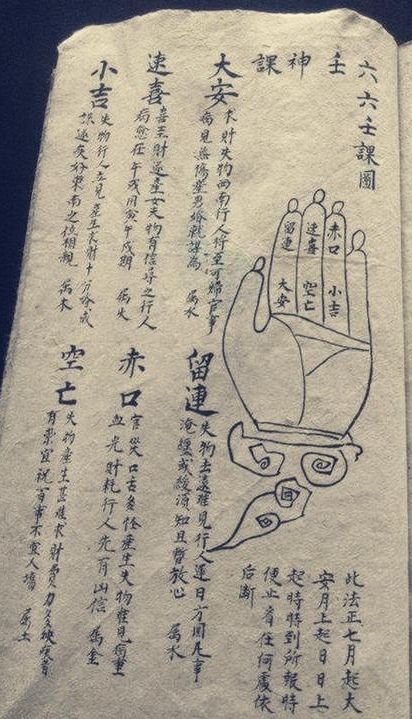 六六壬課圖
壬神課
大安
求財失物西南行人行至何婦官事
病見無傷產男婚就謀為 属水
留連
失物去遠難見行人連日方回凡事
淹纏或緩須知且暫放心 属水
速喜
喜至財運產女天物有信尋之行人
病愈在午戌月寅午戌期 属火
赤口
官災口舌多怪產生失物難見病重
血光財耗行人先有凶信 属金
小吉
失物行人立見產生求財十分合成
病速良好東南之位相親 属木
空亡
失物產生甚难求財費力多缺疾者
有祟宜祝百事不宜人墻 属土
留連
速喜
赤口
大安
空亡
小吉
此法正七月起大
安月上起日日上
起時時到所報時
便止看在何處依
后斷